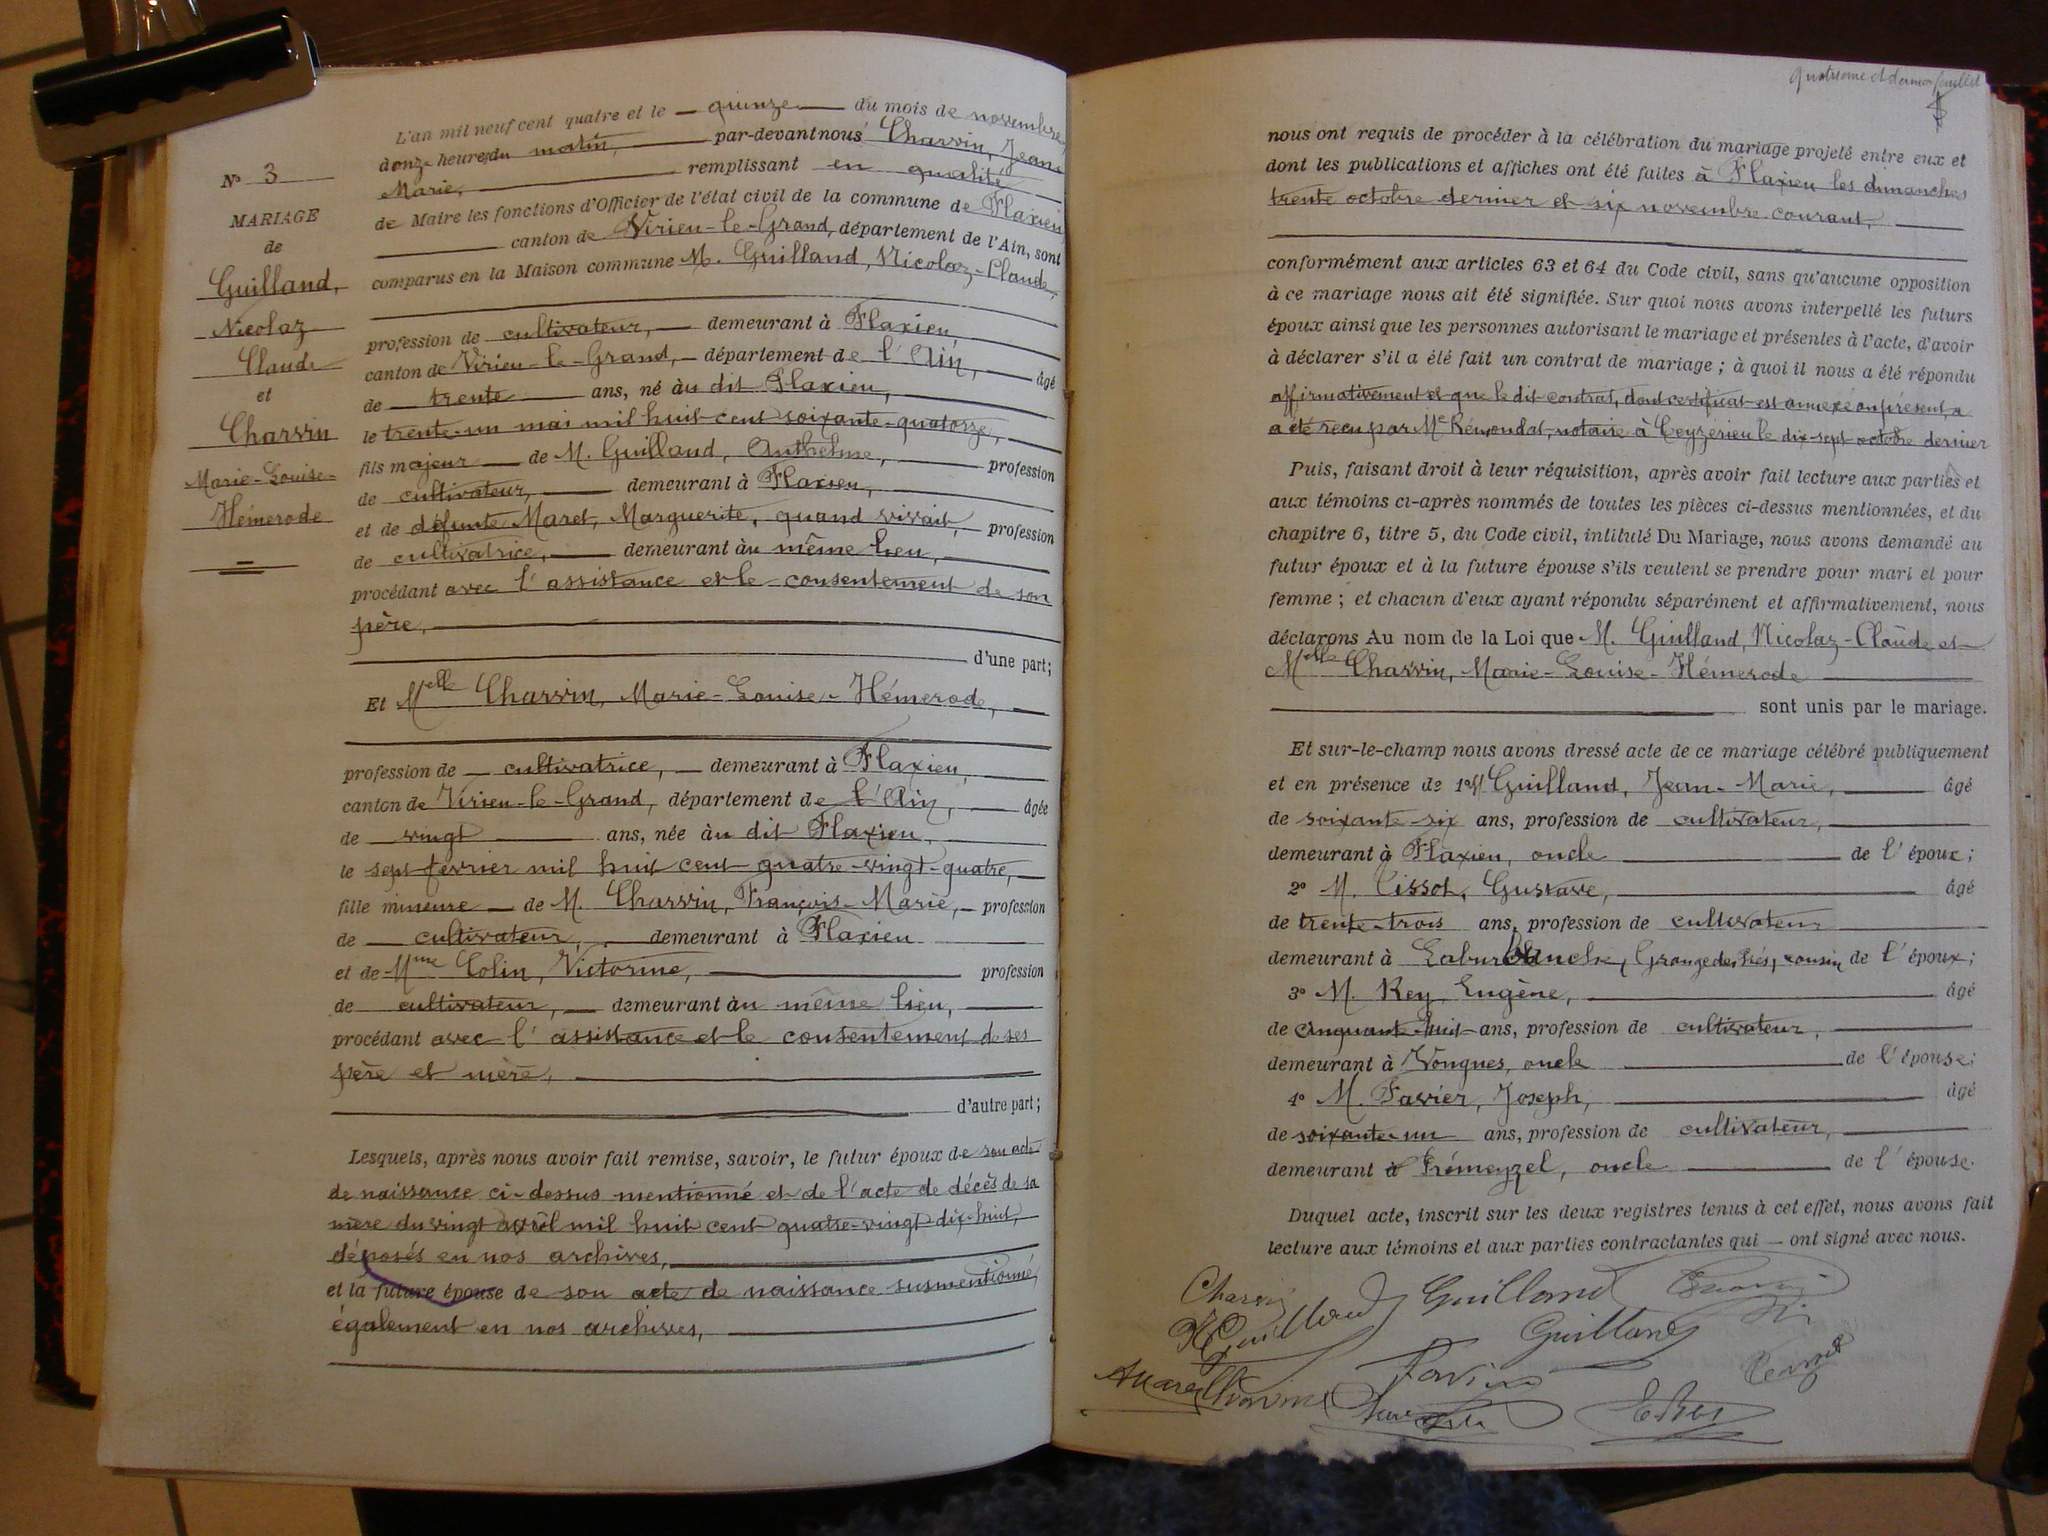 N° 3
MARIAGE
de
Guilland,
Nicolaz
Claude
et
Charvin
Marie-Louise-
Hémerode
L'an mil neuf cent quatre et le quinze du mois de novembre
à onze heures du matin, par-devant nous Charvin, Jean
Marie, remplissant en qualité
de Maire les fonctions d'Officier de l'état civil de la commune de Flaxieu,
canton de Virieu-le-Grand, département de l'Ain, sont
comparus en la Maison commune M. Guilland, Nicolaz-Claude,
profession de cultivateur, demeurant à Flaxieu
canton de Virieu-le-Grand, département de l'Ain, âgé
de trente ans, né àu dit Flaxieu,
le trente-un mai mil huit cent soixante-quatorze,
fils majeur de M. Guilland, Anthelme, profession
de cultivateur, demeurant à Flaxieu,
et de défunte Maret, Marguerite, quand vivait, profession
de cultivatrice, demeurant àu même lieu,
procédant avec l'assistance et le consentement de son
père,
d'une part;
Et Melle Charvin, Marie-Louise-Hémerode,
profession de cultivatrice, demeurant à Flaxieu,
canton de Virieu-le-Grand, département de l'Ain, âgée
de vingt ans, née àu dit Flaxieu,
le sept février mil huit cent quatre-vingt-quatre,
fille mineure de M. Charvin, François-Marie, profession
de cultivateur, demeurant à Flaxieu
et de Mme Colin, Victorine, profession
de cultivateur, demeurant àu même lieu,
procédant avec l'assistance et le consentement de ses
père et mère,
d'autre part;
Lesquels, après nous avoir fait remise, savoir, le futur époux de son acte
de naissance ci-dessus mentionné et de l'acte de décès de sa
mère du vingt avril mil huit cent quatre-vingt-dix-huit,
déposés en nos archives,
et la future épouse de son acte de naissance susmentionné,
également en nos archives,
quatrième et dernier feuillet
nous ont requis de procéder à la célébration du mariage projeté entre eux et
dont les publications et affiches ont été faites à Flaxieu les dimanches
trente octobre dernier et six novembre courant,
conformément aux articles 63 et 64 du Code civil, sans qu'aucune opposition
à ce mariage nous ait été signifiée. Sur quoi nous avons interpellé les futurs
époux ainsi que les personnes autorisant le mariage et présentes à l'acte, d'avoir
à déclarer s'il a été fait un contrat de mariage; à quoi il nous a été répondu
affirmativement et que le dit contrat, dont certificat est annexé au présent, a
a été reçu par Me Rémondat, notaire à Ceyzérieu le dix-sept octobre dernier
Puis, faisant droit à leur réquisition, après avoir fait lecture aux parties et
aux témoins ci-après nommés de toutes les pièces ci-dessus mentionnées, et du
chapitre 6, titre 5, du Code civil, intitulé Du Mariage, nous avons demandé au
futur époux et à la future épouse s'ils veulent se prendre pour mari et pour
femme; et chacun d'eux ayant répondu séparément et affirmativement, nous
déclarons Au nom de la Loi que M. Guilland, Nicolaz-Claude et
Melle Charvin, Marie-Louise-Hémerode
sont unis par le mariage.
Et sur-le-champ nous avons dressé acte de ce mariage célébré publiquement
et en présence de 1° M Guilland, Jean-Marie, âgé
de soixante-six ans, profession de cultivateur,
demeurant à Flaxieu, oncle de l'époux;
2° M. Tissot, Gustave, âgé
de trente-trois ans, profession de cultivateur
demeurant à Grange des Prés, cousin de l'époux;
3° M. Rey Eugène, âgé
de cinquante-huit ans, profession de cultivateur,
demeurant à Vongnes, oncle de l'épouse;
4° M. Favier, Joseph, âgé
de soixante-un ans, profession de cultivateur,
demeurant à Prémeyzel, oncle de l'épouse.
Duquel acte, inscrit sur les deux registres tenus à cet effet, nous avons fait
lecture aux témoins et aux parties contractantes qui — ont signé avec nous.
Charvin
Guilland Guilland
Guilland
Favier
E Rey